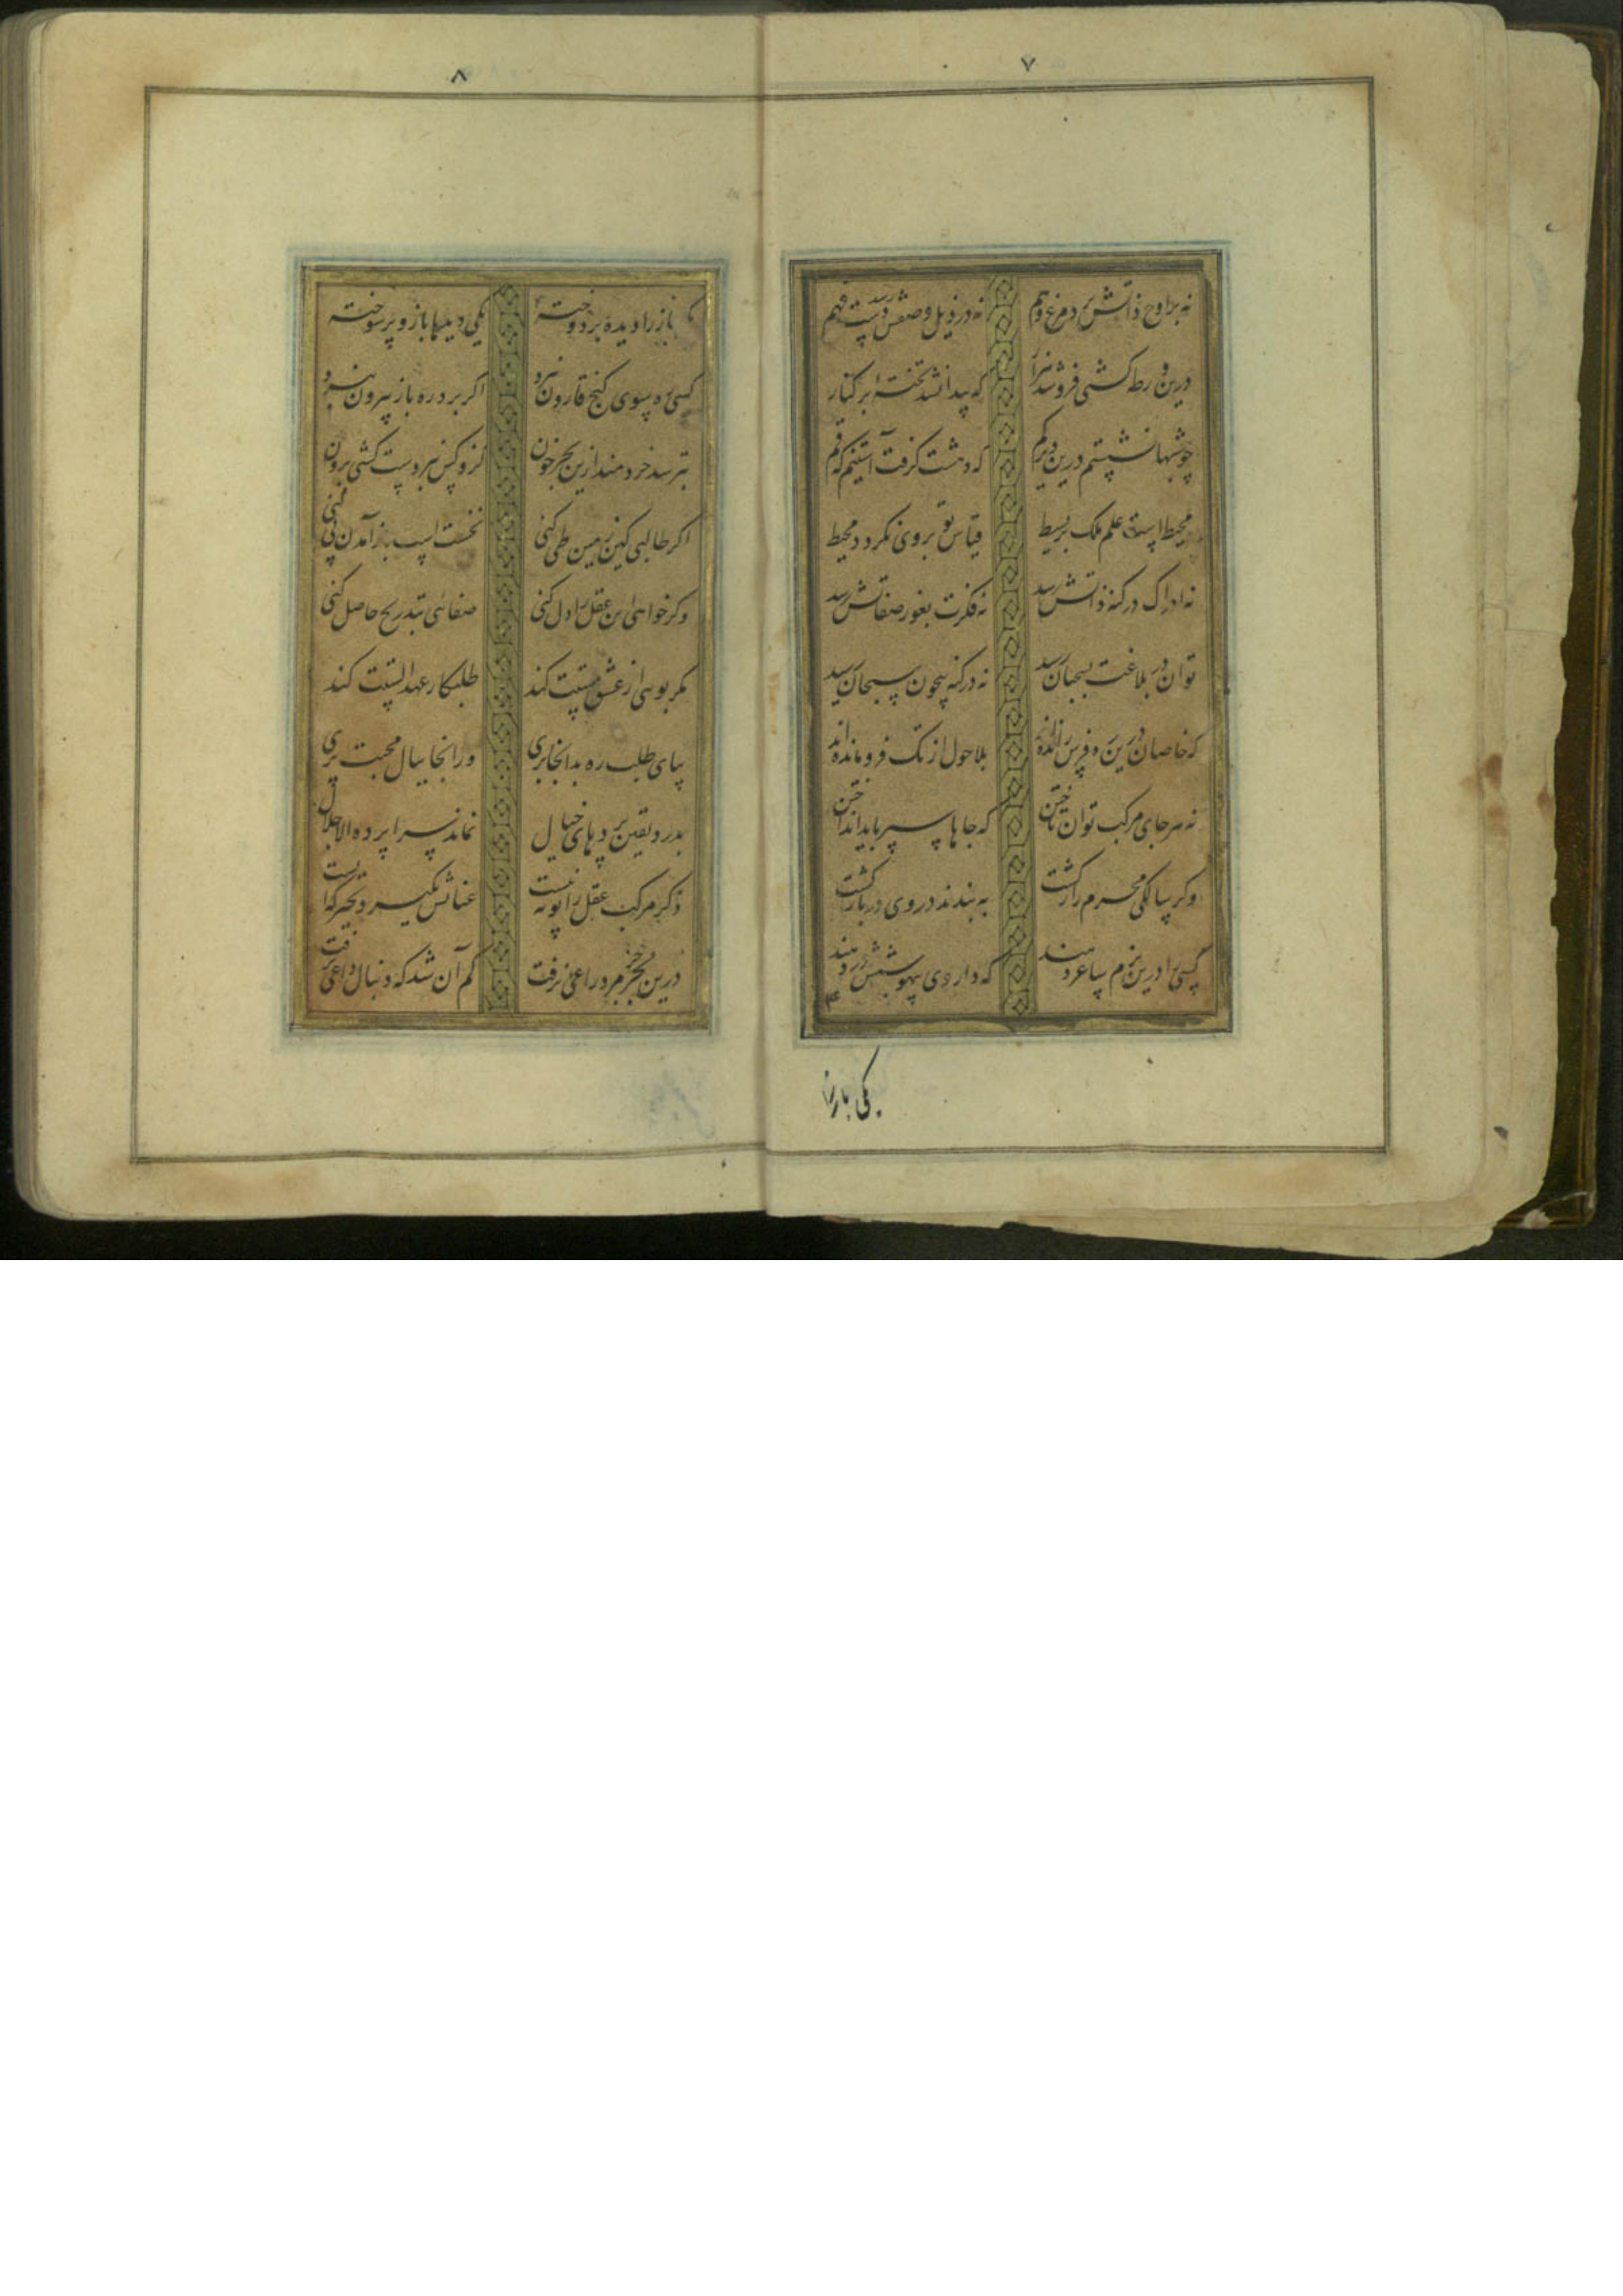 ۷
نه بر اوج ذاتش پرد مرغ وهم نه در ذیل وصفش رسد دست فهم
درین ورطه کشتی فروشد هزار که پیدا نشد تخته‌ای بر کنار
چو شبها نشستم درین دیر گم که دهشت گرفت آستینم که قم
محیط است علم ملک بر بسیط قیاس تو بر وی نگردد محیط
نه ادراک در کنه ذاتش رسد نه فکرت بغور صفاتش رسد
توان در بلاغت بسحبان رسید نه در کنه بیچون سبحان رسید
که خاصان درین ره فرس رانده‌اند بلا حول از تک فرو مانده‌اند
نه هر جای مرکب توان تاختن که جاها سپر باید انداختن
وگر سالکی محرم راز گشت به بندند در وی در بازگشت
کسی را درین بزم ساغر دهند که داروی بیهوشیش در دهند
یکی باز را
۸
باز را دیده بردوخته یکی دیدها باز و پر سوخته
کسی ره سوی گنج قارون نبرد اگر برد ره باز بیرون نبرد
بترسد خردمند ازین بحر خون کزو کس نبردست کشتی برون
اگر طالبی کین زمین طی کنی نخست اسب باز آمدن پی کنی
وگر خواهی این عقل را دل کنی صفائی بتدریج حاصل کنی
مگر بوئی از عشق مستت کند طلبکار عهد الستت کند
بپای طلب ره بدانجا بری ورانجا ببال محبت پری
بدرد یقین پردهای خیال نماند سراپرده الا جلال
دگر مرکب عقل را پویه نیست عنانش بگیرد تحیر که ایست
درین بحر جز مرد راعی نرفت گم آن شد که دنبال داعی نرفت